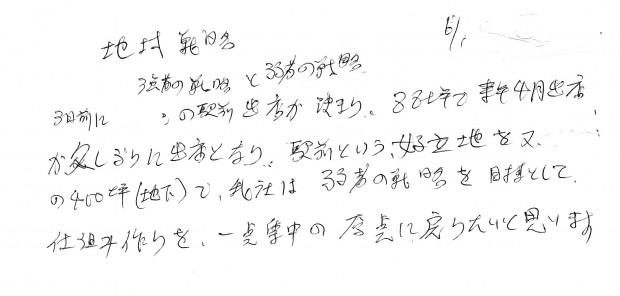 6/1
地域戦略
強者の戦略と弱者の戦略
3日前に の駅前出店が決まり、88坪で来年4月出店
が久しぶりに出店となり、駅前という好立地を又、
の400坪(地下)で、我社は弱者の戦略を目標として、
仕組み作りを、一点集中の原点に戻りたいと思います